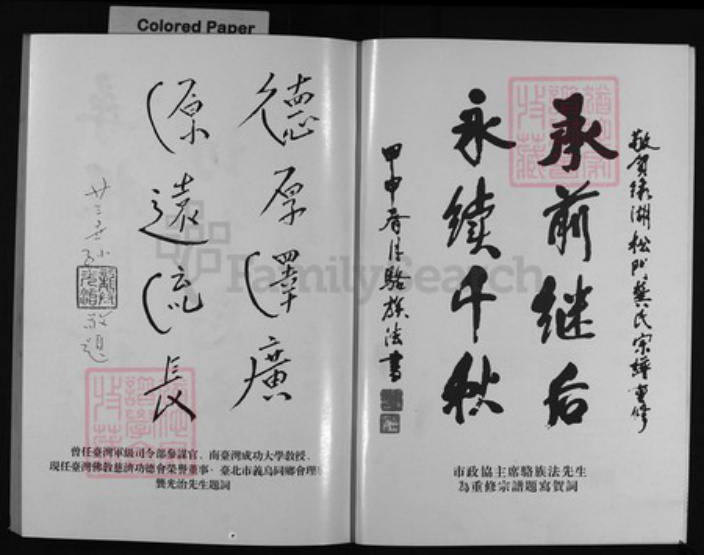 Colored Paper
敬賀绣湖松門龔氏宗譜重修
承前继后
永续千秋
甲申春月骆族法書
市政協主席駱族法先生
為重修宗譜題寫賀詞
德厚澤廣
源遠流長
敬題
曾任臺灣軍級司令部參謀官、南臺灣成功大學教授、
現任臺灣佛教慈濟功德會榮譽董事、臺北市義烏同鄉會理
龔光治先生題詞
FamilySearch